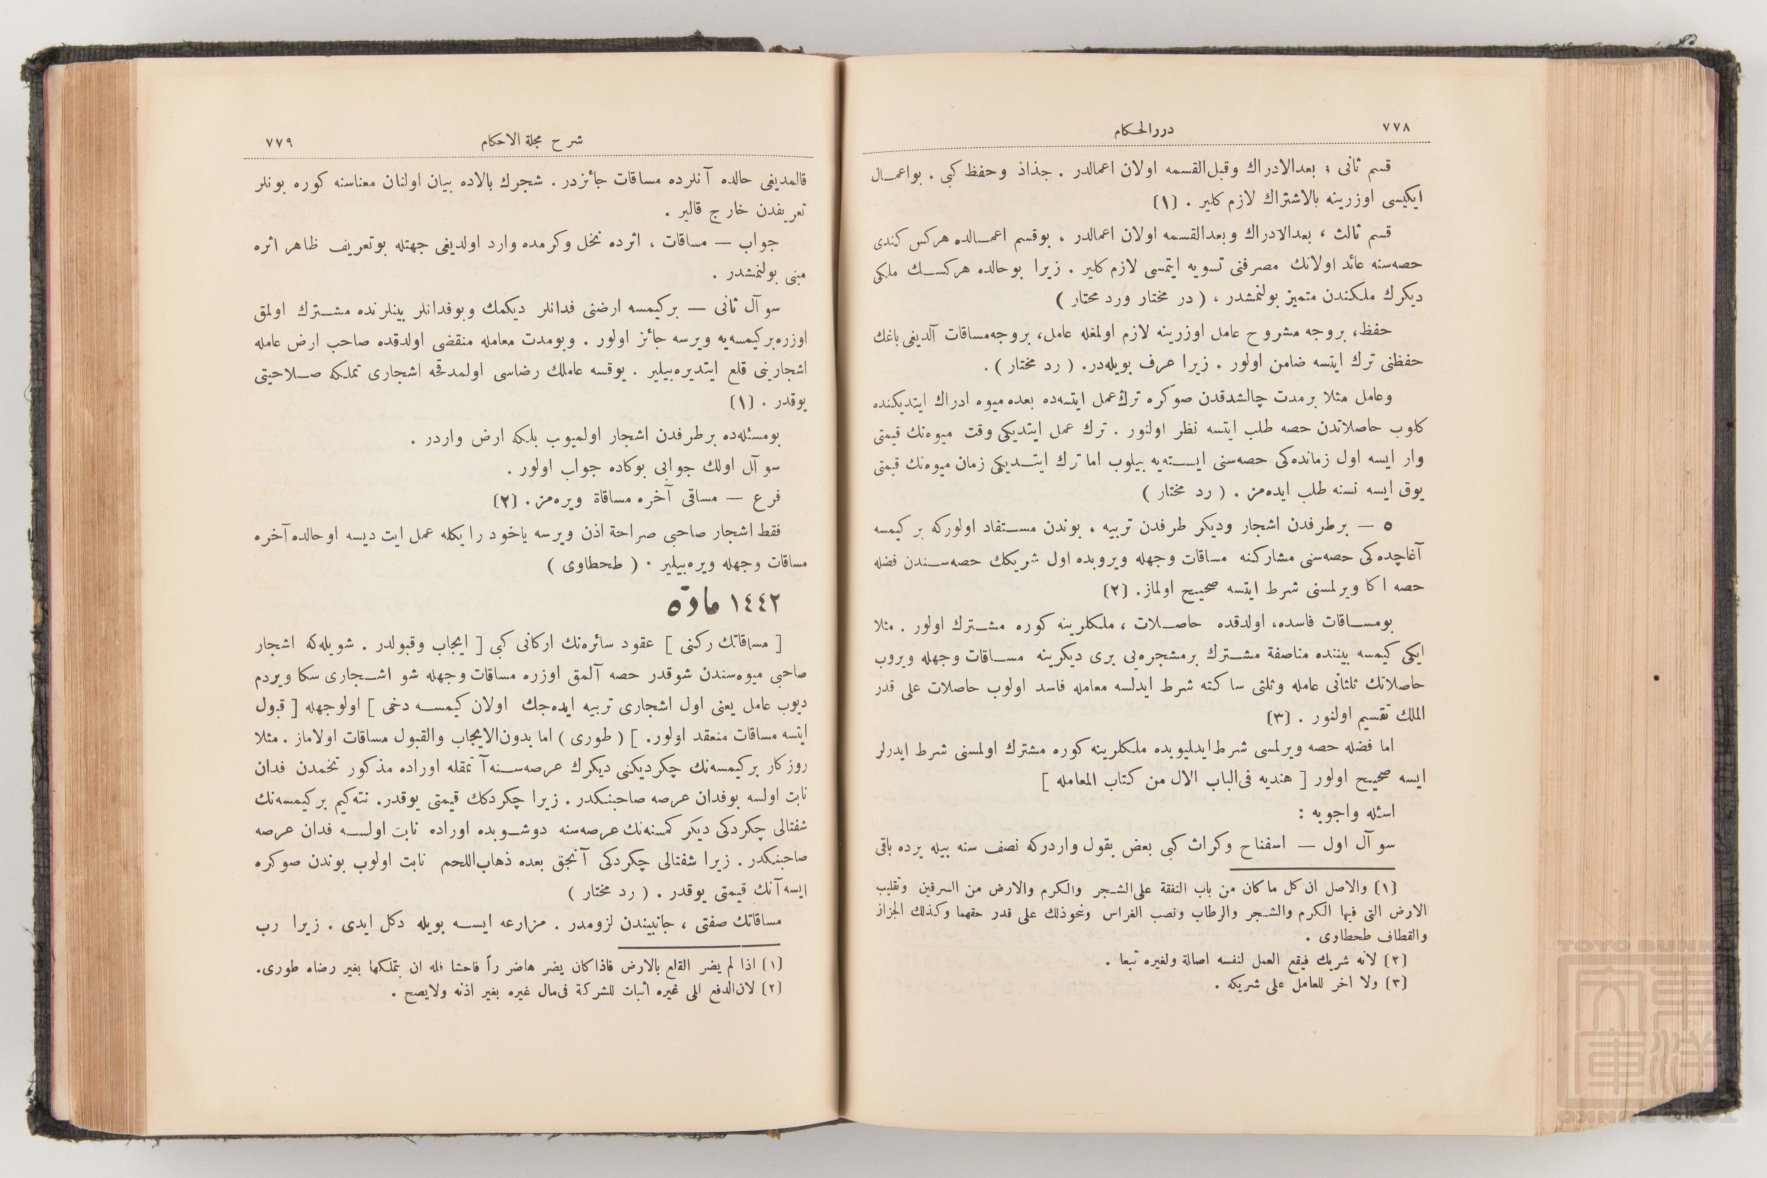 ٧٧٨
دررالحكام
قسم ثانى ؛ بعدالادراك وقبل‌القسمه اولان اعمالدر . جذاذ وحفظ كبى . بواعمـال
ايكيسى اوزرينه بالاشتراك لازم كلير . (١)
قسم ثالث ، بعدالادراك وبعدالقسمه اولان اعمالدر . بوقسم اعمـالده هركس كندى
حصه‌سنه عائد اولانك مصرفنى تسويه ايتمسى لازم كلير . زيرا بوحالده هركسـك ملكى
ديكرك ملكندن متميز بولنمشدر . ( در مختار ورد مختار )
حفظ، بروجه مشروح عامل اوزرينه لازم اولمغله عامل، بروجه‌مساقات آلديغى باغك
حفظنى ترك ايتسه ضامن اولور . زيرا عرف بويله‌در. ( رد مختار ) .
وعامل مثلا برمدت چالشدقدن صوكره ترك‌عمل ايتسه‌ده بعده ميوه ادراك ايتديكنده
كلوب حاصلاتدن حصه طلب ايتسه نظر اولنور . ترك عمل ايتديكى وقت ميوه‌نك قيمتى
وار ايسه اول زمانده‌كى حصه‌سنى ايسـته‌يه بيلوب اما ترك ايتـديكى زمان ميوه‌نك قيمتى
يوق ايسه نسنه طلب ايده‌مز . ( رد مختار )
٥ — برطرفدن اشجار وديكر طرفدن تربيه ، بوندن مسـتفاد اولوركه بركيمسه
آغاچده‌كى حصه‌سنى مشاركنه مساقات وجهله ويروبده اول شريكك حصه‌سـندن فضله
حصه اكا ويرلمسنى شرط ايتسه صحيح اولماز. (٢)
بومسـاقات فاسده، اولدقده حاصـلات ، ملكلرينه كوره مشـترك اولور . مثلا
ايكى كيمسه بيننده مناصفة مشـترك برمشجره‌يى برى ديكرينه مسـاقات وجهله ويروب
حاصلاتك ثلثانى عامله وثلثى ساكته شرط ايدلسه معامله فاسد اولوب حاصلات على قدر
الملك تقسيم اولنور . (٣)
اما فضله حصه ويرلمسى شرط‌ايدليوبده ملكلرينه كوره مشترك اولمسنى شرط ايدرلر
ايسه صحيح اولور [ هنديه فى‌الباب الال من كتاب المعامله ]
اسئله واجوبه :
سوآل اول — اسفناح وكراث كبى بعض بقول واردركه نصف سنه بيله يرده باقى
(١) والاصل ان كل ماكان من باب النفقة على‌الشـجر والكرم والارض من السرقين وتقليب
الارض التى فيها الكرم والشـجر والرطاب ونصب الغراس ونحوذلك على قدر حقهما وكذلك الجزاز
والقطاف طحطاوى .
(٢) لانه شريك فيقع العمل لنفسه اصالة ولغيره تبعا .
(٣) ولا اخر للعامل على شريكه .
شرح مجلة الاحكام
٧٧٩
قالمديغى حالده آنلرده مساقات جائزدر . شجرك بالاده بيان اولنان معناسنه كوره بونلر
تعريفدن خارج قالير .
جواب — مساقات ، اثرده نخل وكرمده وارد اولديغى جهتله بوتعريف ظاهر اثره
مبنى بولنمشدر .
سوآل ثانى — بركيمسه ارضنى فدانلر ديكمك وبوفدانلر بينلرنده مشـترك اولمق
اوزره‌بركيمسه‌يه ويرسه جائز اولور . وبومدت معامله منقضى اولدقده صاحب ارض عامله
اشجارينى قلع ايتديره‌بيلير . يوقسه عاملك رضاسى اولمدقجه اشجارى تملكه صـلاحيتى
يوقدر . (١)
بومسئله‌ده برطرفدن اشجار اولميوب بلكه ارض واردر .
سوآل اولك جوابى بوكاده جواب اولور .
فرع — مساقى آخره مساقاة ويره‌مز. (٢)
فقط اشجار صاحبى صراحة اذن ويرسه ياخود رايكله عمل ايت ديسه اوحالده آخره
مساقات وجهله ويره‌بيلير . ( طحطاوى )
١٤٤٢ مادّه
[ مساقاتك ركنى ] عقود سائره‌نك اركانى كبى [ ايجاب وقبولدر . شويله‌كه اشجار
صاحبى ميوه‌سندن شوقدر حصه آلمق اوزره مساقات وجهله شو اشـجارى سكا ويردم
ديوب عامل يعنى اول اشجارى تربيه ايده‌جك اولان كيمسـه دخى ] اولوجهله [ قبول
ايتسه مساقات منعقد اولور. ] ( طورى ) اما بدون‌الايجاب والقبول مساقات اولاماز . مثلا
روزكار بركيمسه‌نك چكرديكنى ديكرك عرصه‌سـنه‌آتمقله اوراده مذكور تخمدن فدان
نابت اولسه بوفدان عرصه صاحبنكدر . زيرا چكردكك قيمتى يوقدر. نته‌كيم بركيمسه‌نك
شفتالى چكردكى ديكر كمسنه‌نك عرصه‌سنه دوشـوبده اوراده نابت اولسـه فدان عرصه
صاحبنكدر . زيرا شفتالى چكردكى آنجق بعده ذهاب‌اللحم نابت اولوب بوندن صوكره
ايسه آنك قيمتى يوقدر . ( رد مختار )
مساقاتك صفتى ، جانبيندن لزومدر . مزارعه ايسـه بويله دكل ايدى . زيرا رب
(١) اذا لم يضر القلع بالارض فاذاكان يضر هاضر راً فاحشا فله ان يتملكها بغير رضاه طورى.
(٢) لان‌الدفع الى غيره اثبات للشركة فى‌مال غيره بغير اذنه ولايصح .
TOYO BUNKO